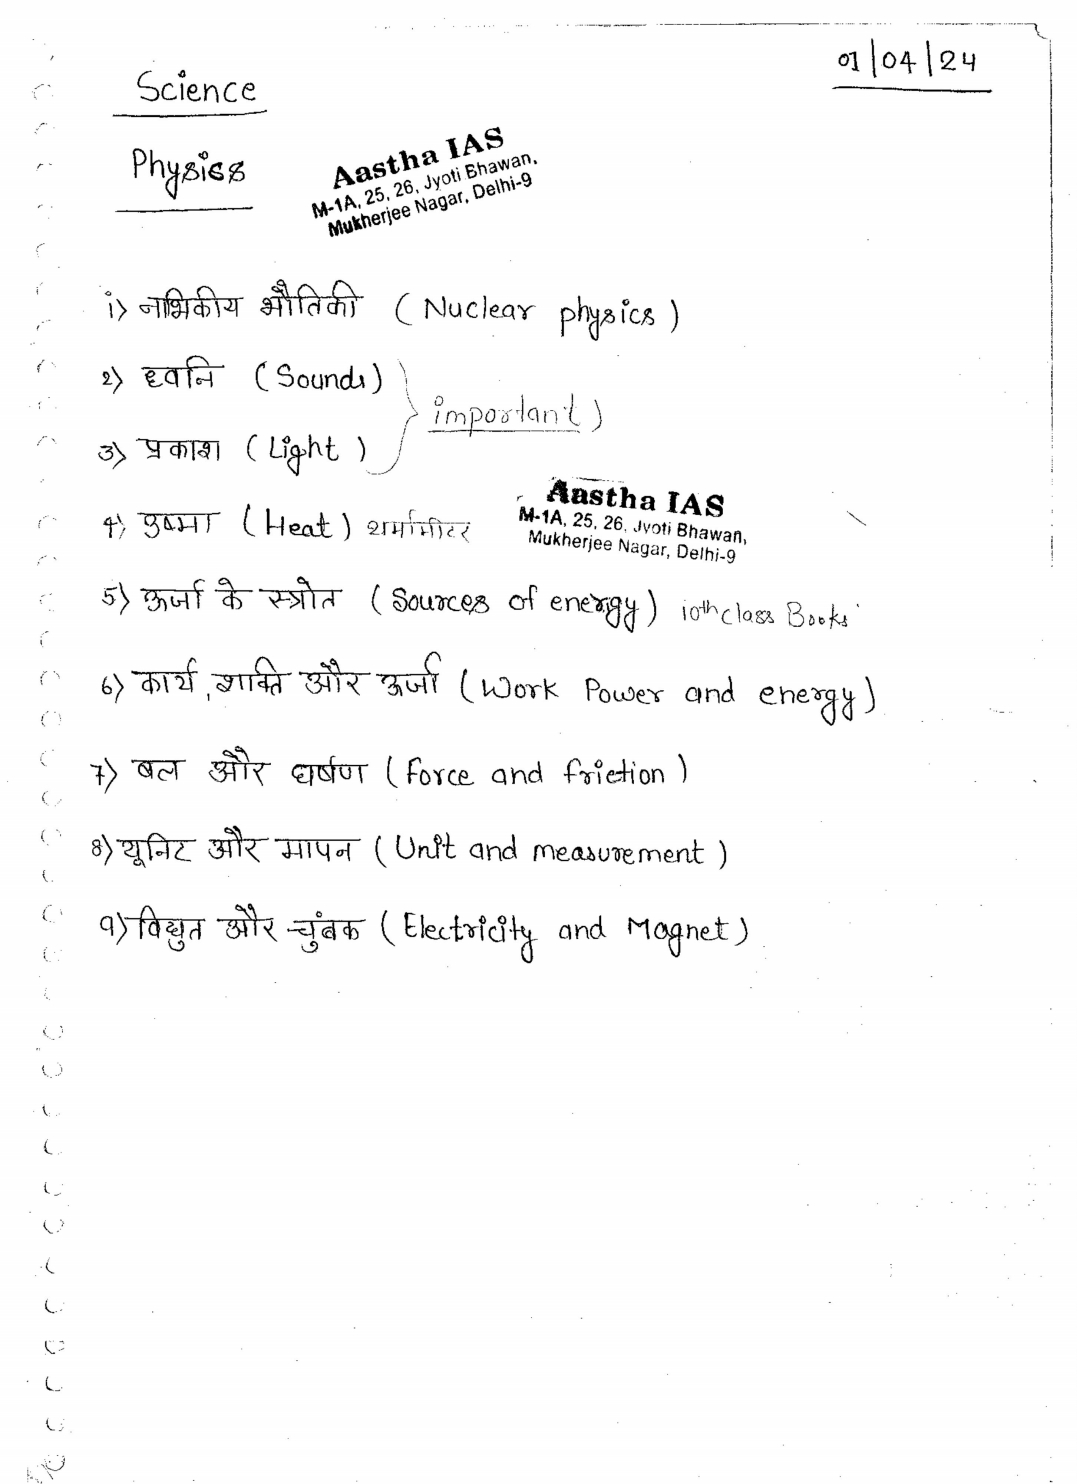 01/04/24
Science
Physics
Aastha IAS
M-1A, 25, 26, Jyoti Bhawan,
Mukherjee Nagar, Delhi-9
1) नाभिकीय भौतिकी ( Nuclear physics )
2) ध्वनि ( Sounds )
important )
3) प्रकाश ( Light )
Aastha IAS
M-1A, 25, 26, Jyoti Bhawan,
Mukherjee Nagar, Delhi-9
4) उष्मा ( Heat ) थर्मामीटर
5) ऊर्जा के स्त्रोत ( Sources of energy ) 10th class Books
6) कार्य, शक्ति और ऊर्जा ( Work Power and energy )
7) बल और घर्षण ( Force and friction )
8) यूनिट और मापन ( Unit and measurement )
9) विद्युत और चुंबक ( Electricity and Magnet )